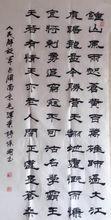 鍾山風雨起蒼黃百萬雄師過大江
虎踞龍盤今勝昔天翻地覆慨而慷
宜將剩勇追窮寇不可沽名學霸王
天若有情天亦老人間正道是滄桑
人民解放軍占領南京毛澤東詩